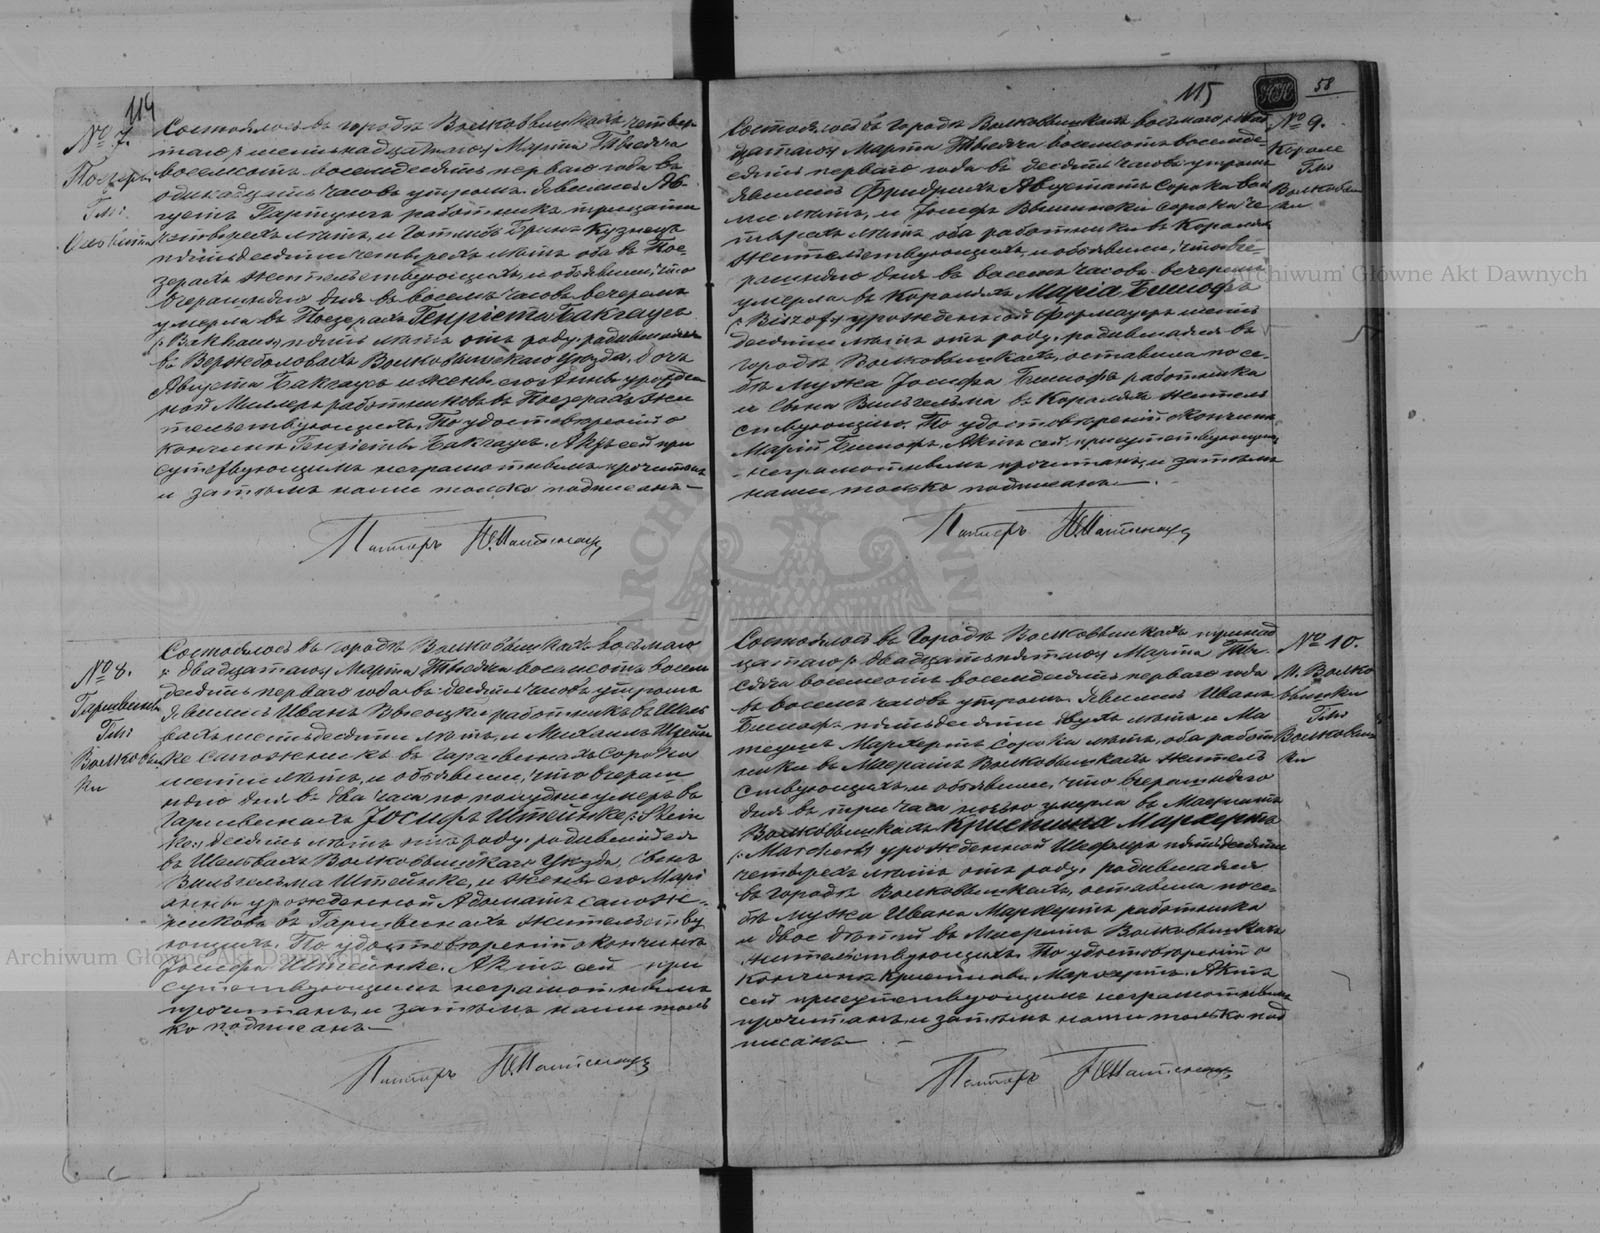 114
№ 7.
Позеры
Гми:
Состоялось въ городѣ Волковышкахъ четвер-
таго / шестнадцатаго Марта Тысяча
восемсотъ восемдесятъ перваго года въ
одинадцать часовъ утромъ. Явились Ав-
густъ Гартунгъ работникъ тридцати
четырехъ лѣтъ, и Готлибъ Гринъ Кузнецъ
пятьдесяти четырехъ лѣтъ оба въ Позе-
зерахъ жительствующихъ, и объявили, что
вчерашняго дня въ восемъ часовъ вечеромъ
умерла въ Позерахъ Генріета Бакгаусъ
/: Bakhaus :/ пять лѣтъ отъ роду, родившаяся
въ Вержболовахъ Волковышскаго Уѣзда, дочь
Августа Бакгаусъ и жены его Анны урожден
ной Миллеръ работниковъ въ Позерахъ жи
тельствующихъ. По удостовѣреніи о
кончинѣ Генріеты Бакгаусъ. Актъ сей при
сутствующимъ неграмотнымъ прочитанъ
и затѣмъ нами только подписанъ.—
Пасторъ
№ 8.
Гми:
Волковыш
ки
Состоялось въ городѣ Волковышкахъ восьмаго
/ двадцатаго Марта Тысяча восемсотъ восем
десятъ перваго года въ десять часовъ утромъ
Явились Иванъ Высоцки работникъ въ Шель
вахъ шестьдесяти лѣтъ, и Михаилъ Штейн
ке сапожникъ въ Гаршвинахъ сорока
шести лѣтъ, и объявили, что вчераш
няго дня въ два часа по полудни умеръ въ
Гаршвинахъ Іосифъ Штейнке /: Stein
ke :/ десять лѣтъ отъ роду, родившійся
въ Шельвахъ Волковышскаго Уѣзда, сынъ
Вильгельма Штейнке, и жены его Марі
анны урожденной Адоматъ сапож-
никовъ въ Гаршвинахъ жительству
ющихъ. По удостовѣреніи о кончинѣ
Іосифа Штейнке. Актъ сей при
сутствующимъ неграмотнымъ
прочитанъ, и затѣмъ нами толь
ко подписанъ.—
Пасторъ
115
58
№ 9.
Короле
Гми
Волковыш
ки
Состоялось въ городѣ Волковышкахъ восьмаго / два
дцатаго Марта Тысяча восемсотъ восемде-
сятъ перваго года въ десять часовъ утромъ
Явились Фридрихъ Августатъ сорока вось
ми лѣтъ, и Іосифъ Вышински сорока че
тырехъ лѣтъ оба работники въ Короляхъ
жительствующихъ, и объявили, что вче-
рашняго дня въ восемъ часовъ вечеромъ
умерла въ Короляхъ Марія Бишофъ
/: Biszof :/ урожденной Формауеръ шесть
десяти лѣтъ отъ роду, родившаяся въ
городѣ Волковышкахъ, оставила по се-
бѣ мужа Іосифа Бишофъ работника
и Сына Вильгельма въ Короляхъ житель
ствующаго. По удостовѣреніи о кончинѣ
Маріи Бишофъ. Актъ сей присутствующимъ
неграмотнымъ прочитанъ, и затѣмъ
нами только подписанъ.—
Пасторъ
№ 10.
М. Волко
вышки
Гми
Волковыш
ки
Состоялось въ Городѣ Волковышкахъ тринад
цатаго / двадцать пятаго Марта Ты-
сяча восемсотъ восемдесятъ перваго года
въ восемъ часовъ утромъ. Явились Иванъ
Бишофъ пятьдесяти двухъ лѣтъ и Ма
теушъ Маркертъ сорока лѣтъ, оба работ
ники въ Маіоратѣ Волковышкахъ житель
ствующихъ, и объявили, что вчерашняго
дня въ три часа ночью умерла въ Маіоратѣ
Волковышкахъ Кристина Маркертъ
/: Markert :/ урожденной Шеферъ пятьдесяти
четырехъ лѣтъ отъ роду, родившаяся
въ городѣ Волковышкахъ, оставила по се-
бѣ мужа Ивана Маркертъ работника
и двое дѣтей въ Маіоратѣ Волковышкахъ
жительствующихъ. По удостовѣреніи о
кончинѣ Кристины Маркертъ. Актъ
сей присутствующимъ неграмотнымъ
прочитанъ, и затѣмъ нами только под
писанъ.—
Пасторъ
Archiwum Główne Akt Dawnych
Archiwum Główne Akt Dawnych